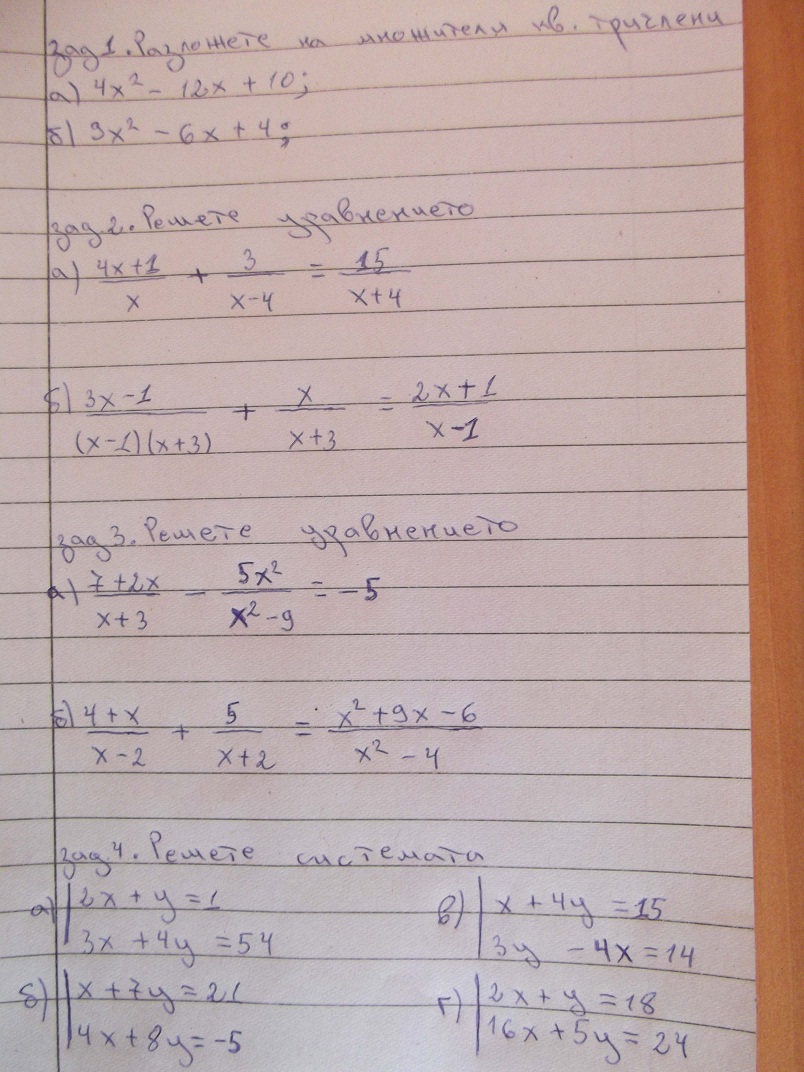 зад 1. Разложете на множители кв. тричлени
а) 4x² - 12x + 10;
б) 3x² - 6x + 4;
зад 2. Решете уравнението
а) (4x+1)/x + 3/(x-4) = 15/(x+4)
б) (3x-1)/((x-1)(x+3)) + x/(x+3) = (2x+1)/(x-1)
зад 3. Решете уравнението
а) (7+2x)/(x+3) - 5x²/(x²-9) = -5
б) (4+x)/(x-2) + 5/(x+2) = (x²+9x-6)/(x²-4)
зад. 4. Решете системата
а) | 2x + y = 1
3x + 4y = 54
в) | x + 4y = 15
3y - 4x = 14
б) | x + 7y = 21
4x + 8y = -5
г) | 2x + y = 18
16x + 5y = 24